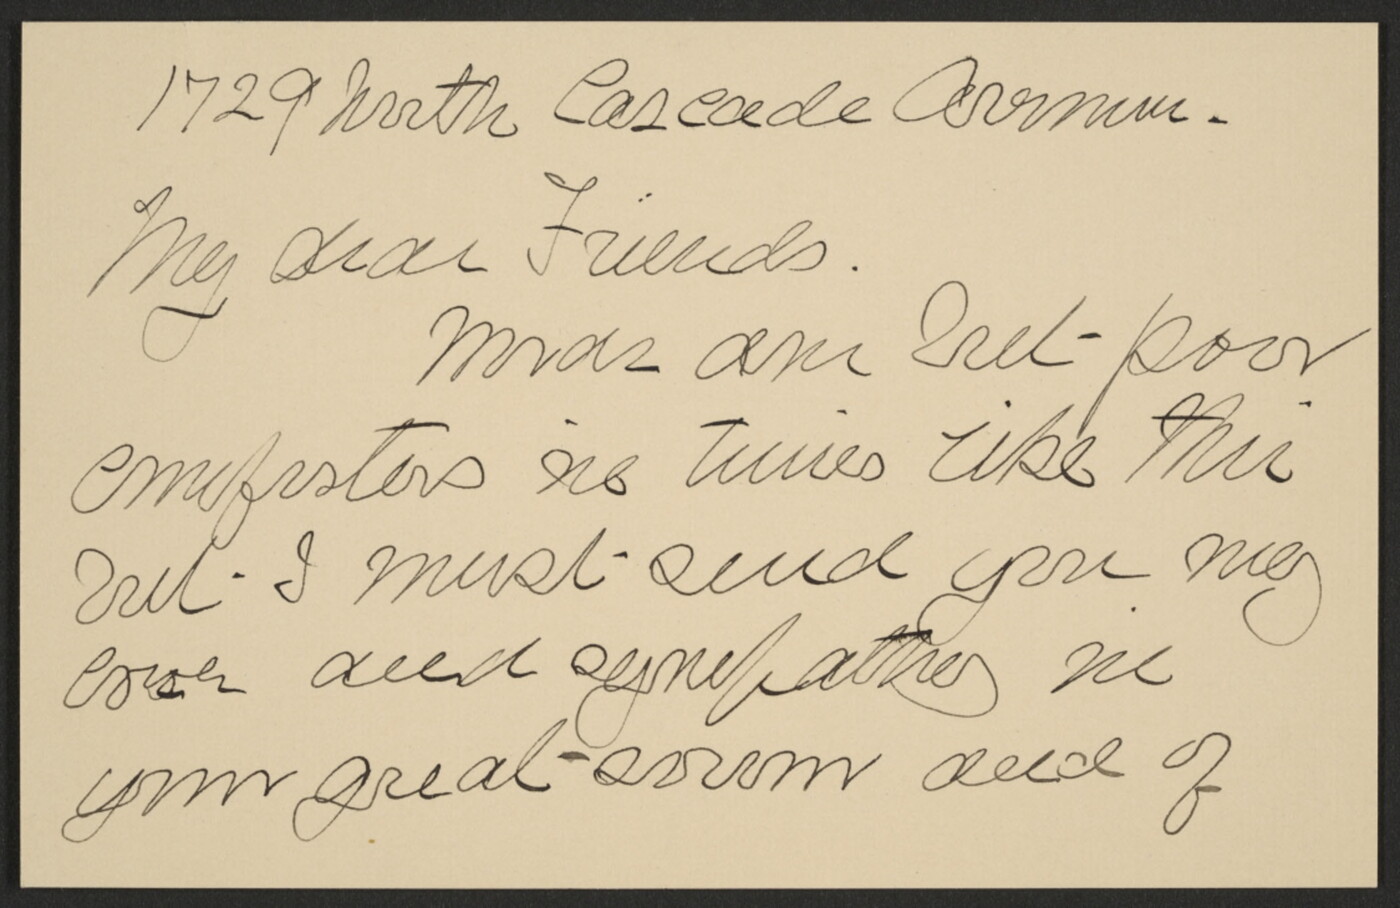 1729 North Cascade Avenue.
My dear Friends.
Words are but poor
comforters in times like this
but I must send you my
love and sympathy in
your great sorrow and of